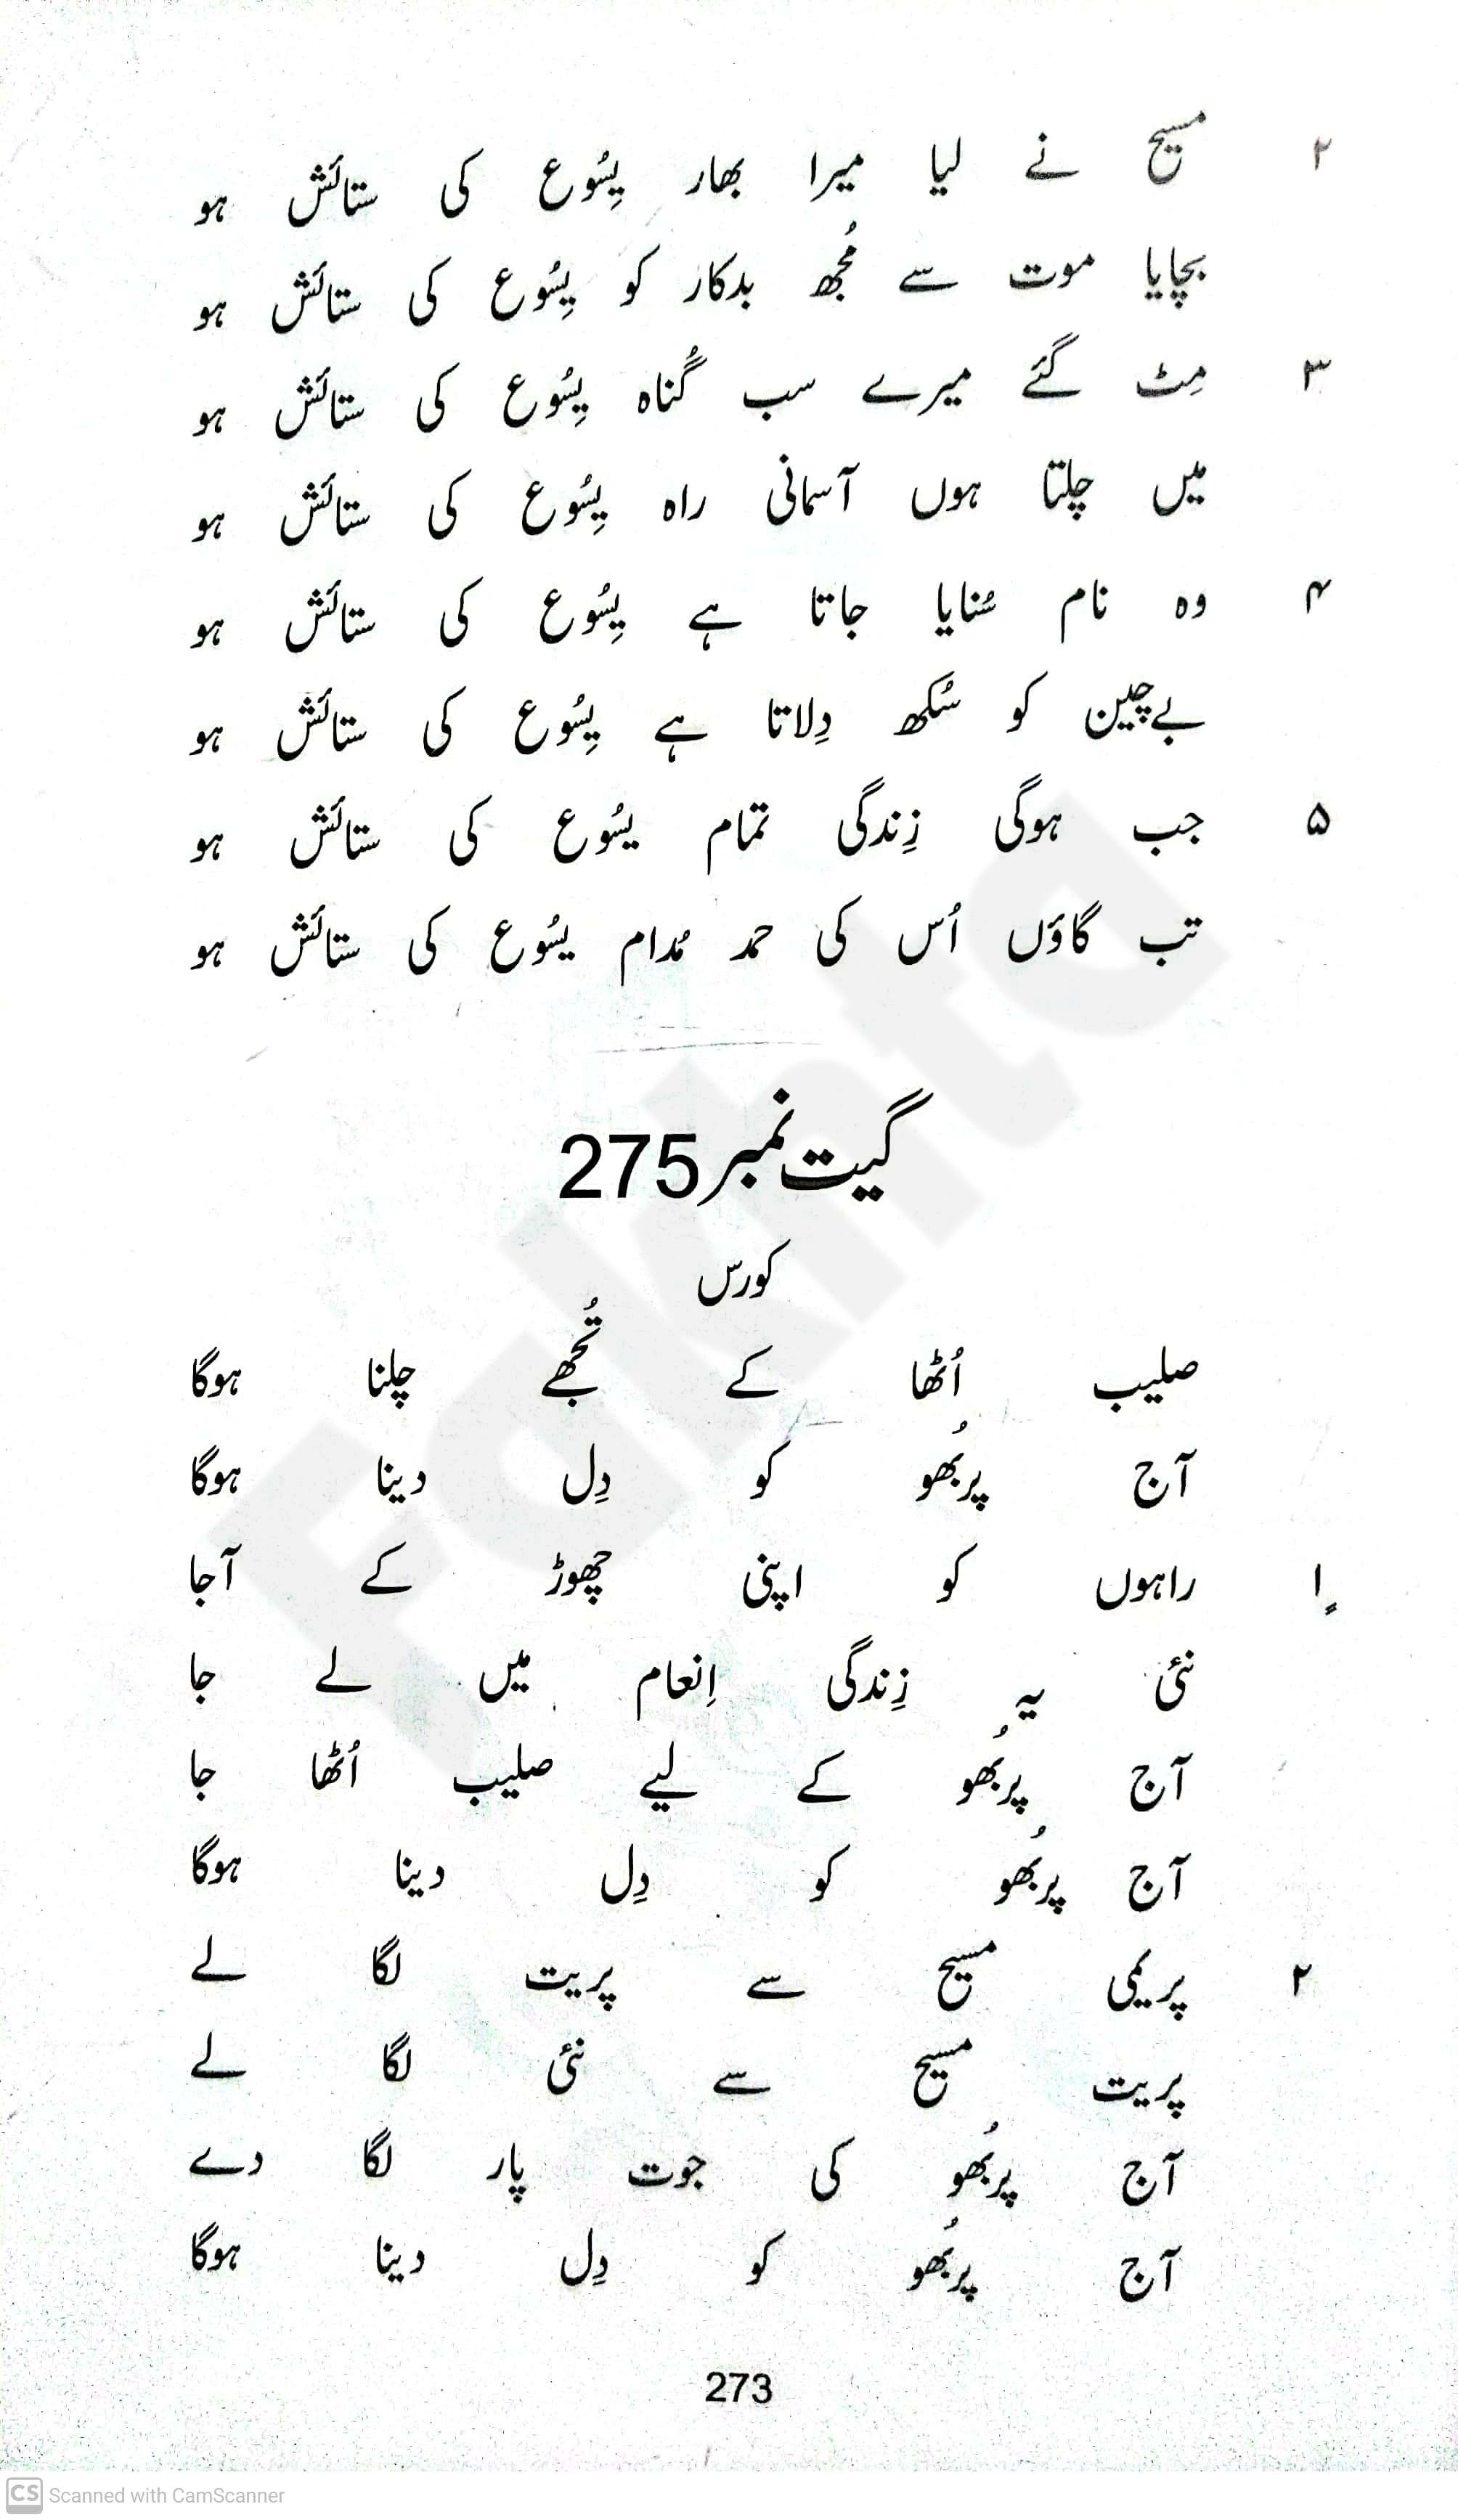 ۲ مسیح نے لیا میرا بھار یِسُوع کی ستائش ہو
بچایا موت سے مُجھ بدکار کو یِسُوع کی ستائش ہو
۳ مِٹ گئے میرے سب گُناہ یِسُوع کی ستائش ہو
میں چلتا ہوں آسمانی راہ یِسُوع کی ستائش ہو
۴ وہ نام سُنایا جاتا ہے یِسُوع کی ستائش ہو
بےچین کو سُکھ دِلاتا ہے یِسُوع کی ستائش ہو
۵ جب ہوگی زِندگی تمام یسُوع کی ستائش ہو
تب گاؤں اُس کی حمد مُدام یسُوع کی ستائش ہو
گیت نمبر 275
کورس
صلیب اُٹھا کے تُجھے چلنا ہوگا
آج پربُھو کو دِل دینا ہوگا
۱ راہوں کو اپنی چھوڑ کے آجا
نئی یہ زِندگی اِنعام میں لے جا
آج پربُھو کے لیے صلیب اُٹھا جا
آج پربُھو کو دِل دینا ہوگا
۲ پریمی مسیح سے پریت لگا لے
پریت مسیح سے نئی لگا لے
آج پربُھو کی جوت پار لگا دے
آج پربُھو کو دِل دینا ہوگا
273
Fakhta
CS Scanned with CamScanner